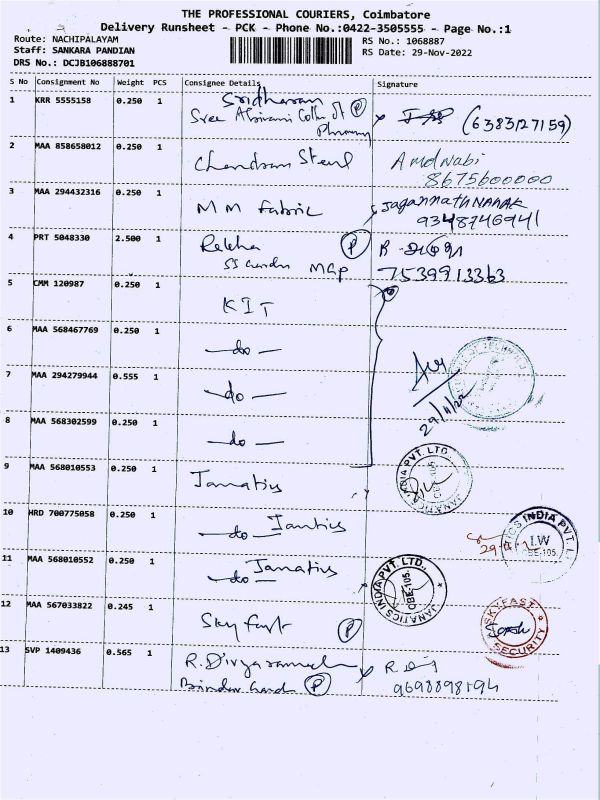 THE PROFESSIONAL COURIERS, Coimbatore
Delivery Runsheet - PCK - Phone No.:0422-3505555 - Page No.:1
Route: NACHIPALAYAM
RS No.: 1068887
Staff: SANKARA PANDIAN
RS Date: 29-Nov-2022
DRS No.: DCJB106888701
S No Consignment No Weight PCS Consignee Details Signature
1 KRR 5555158 0.250 1 Sridharan
Sree Abirami P (6383127159)
Pharmacy
2 MAA 858658012 0.250 1 Chendran Steel
8675600000
3 MAA 294432316 0.250 1 MM Fabric Jagannath NAAAK
9348746941
4 PRT 5048330 2.500 1 Rekha P
MGP 7539913363
5 CMM 120987 0.250 1 KIT
6 MAA 568467769 0.250 1 - do -
7 MAA 294279944 0.555 1 - do -
8 MAA 568302599 0.250 1 - do -
29/11/22
9 MAA 568010553 0.250 1 Janatics
INDIA PVT. LTD.
JANATICS
10 HRD 700775058 0.250 1 - do - Jantics
JANATICS INDIA PVT. L
I.W
CBE-105.
11 MAA 568010552 0.250 1 - do - Janatics
JANATICS INDIA PVT. LTD.,
CBE-105.
12 MAA 567033822 0.245 1 Sky fast P
SKYFAST
SECURITY
13 SVP 1409436 0.565 1 R. Divya R. Div
P 9698898194